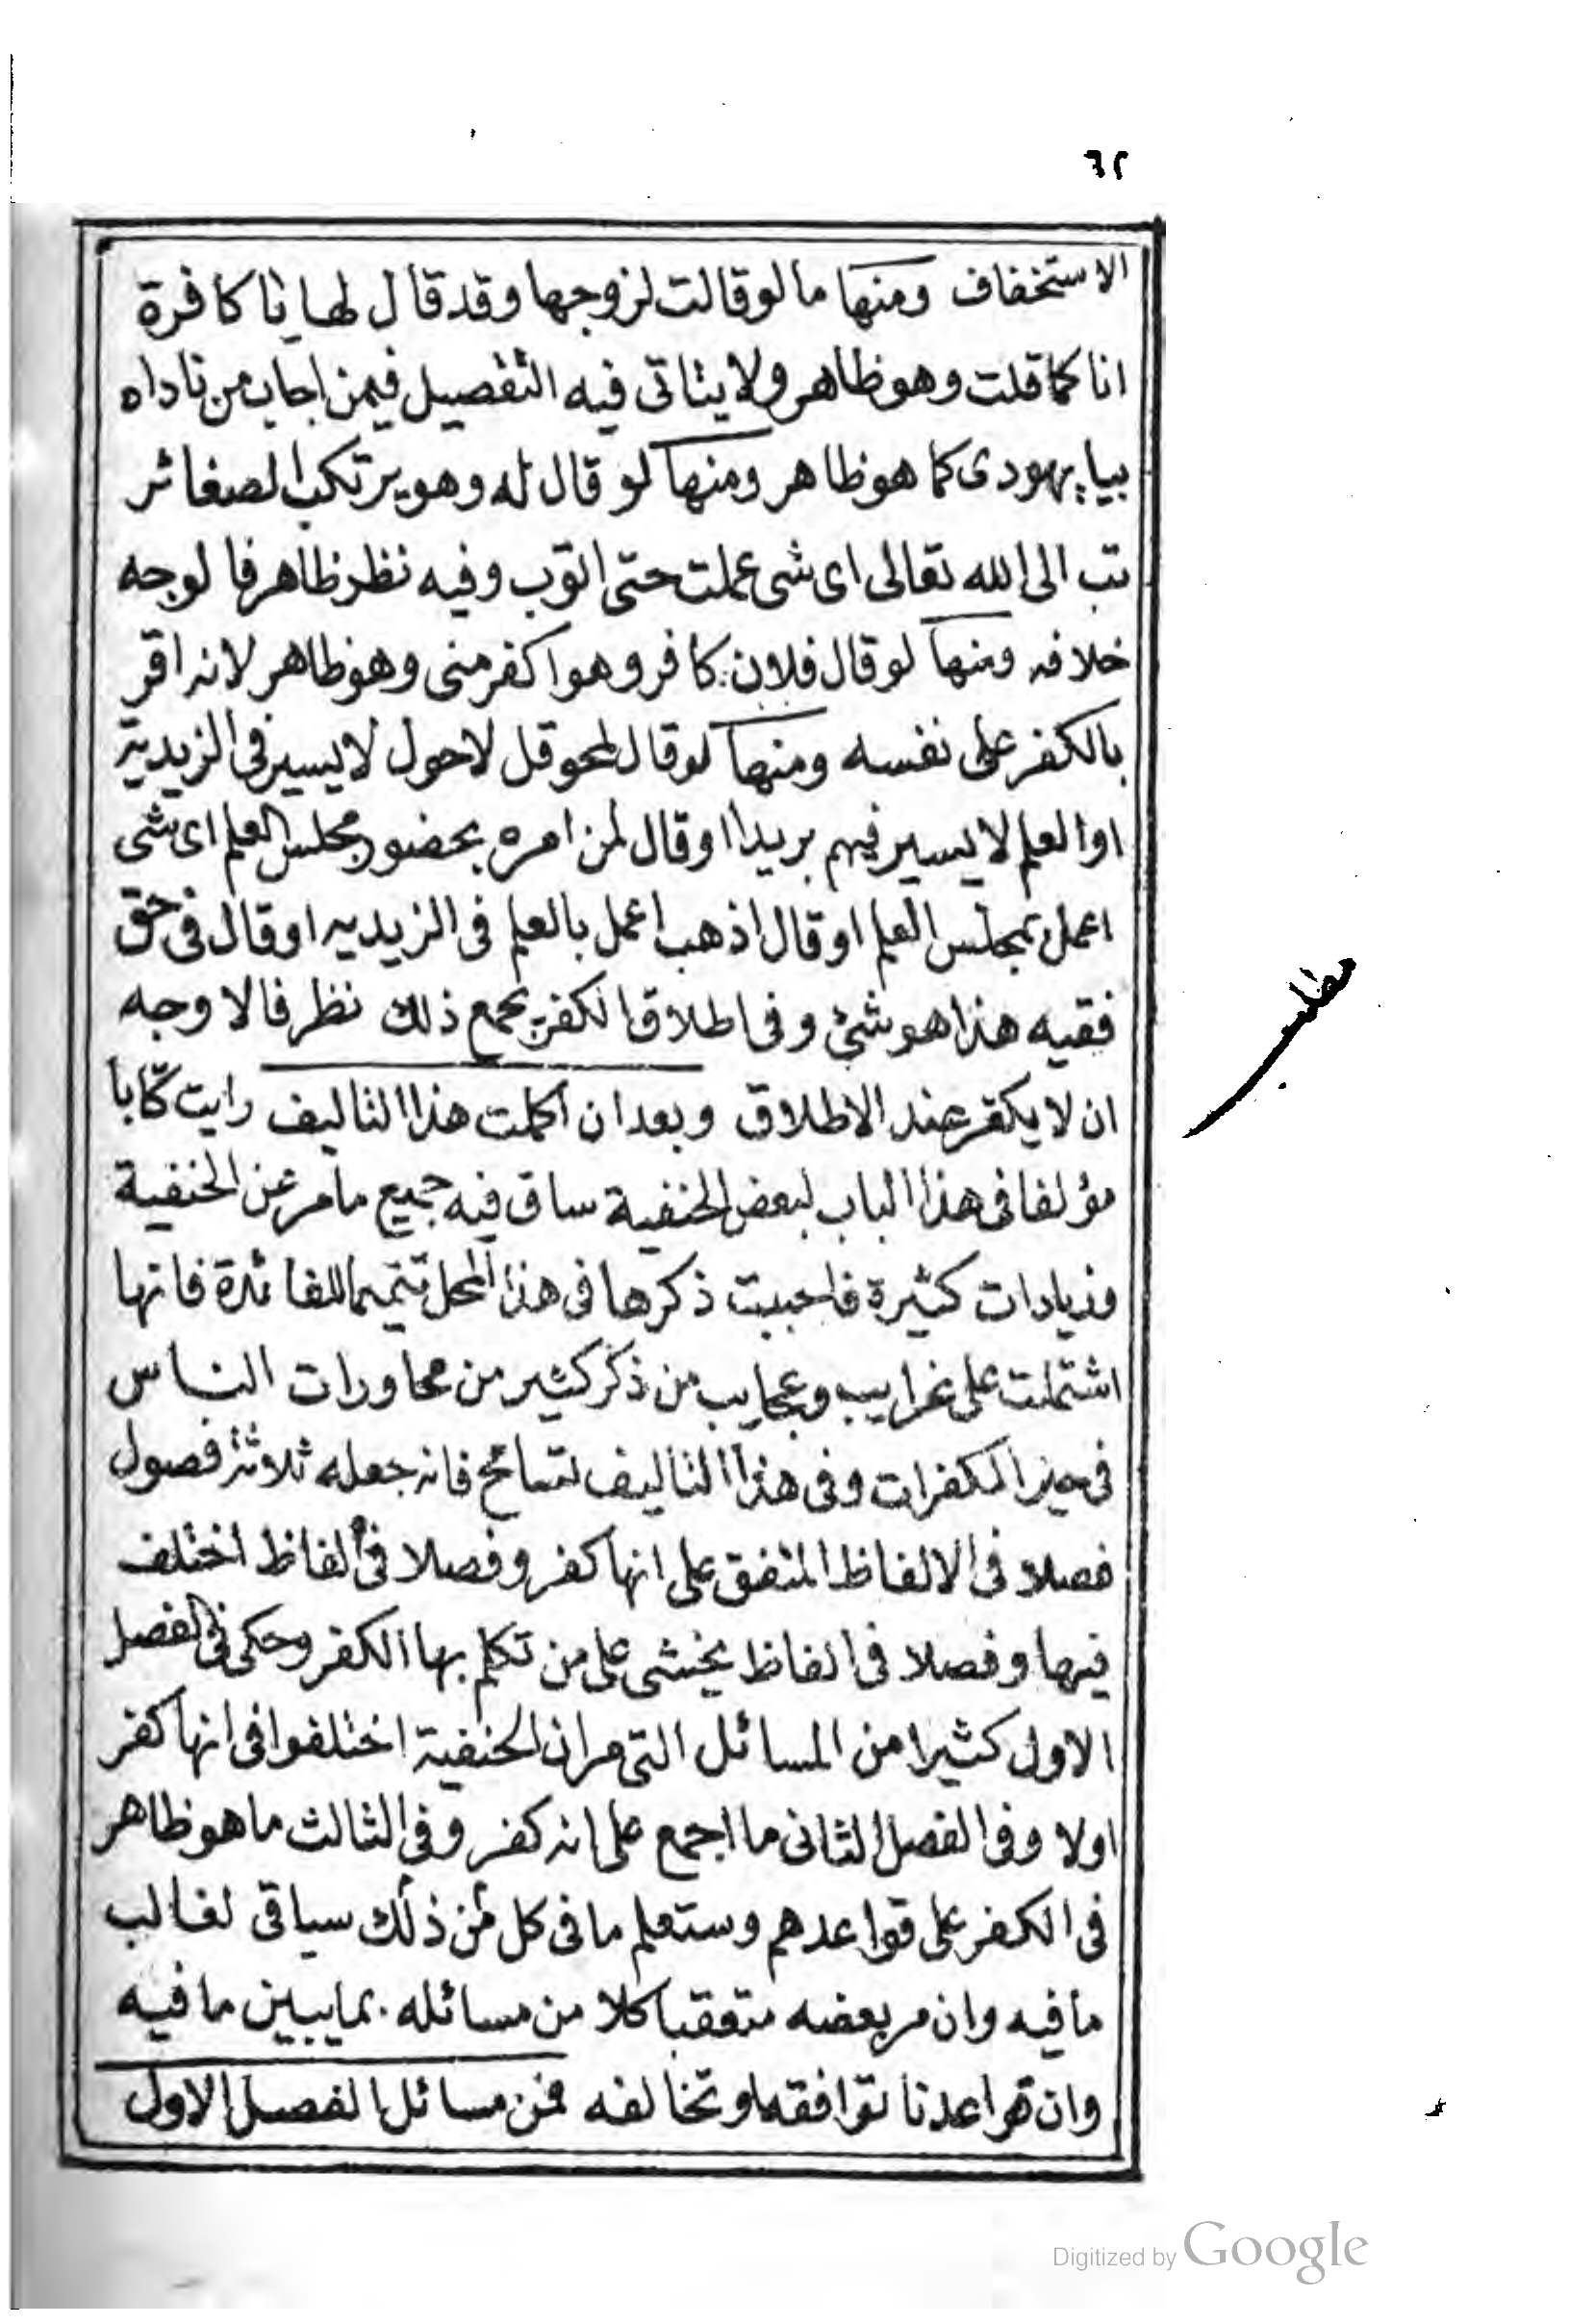 ٦٢
الاستخفاف ومنها ما لو قالت لزوجها وقد قال لها يا كافرة
انا كما قلت وهو ظاهر ولا يتاتى فيه التفصيل فيمن اجاب من ناداه
بيا يهودى كما هو ظاهر ومنها لو قال له وهو يرتكب الصغائر
تب الى الله تعالى اى شى عملت حتى اتوب وفيه نظر ظاهر فالوجه
خلافه ومنها لو قال فلان كافر وهو اكفر منى وهو ظاهر لانه اقر
بالكفر على نفسه ومنها لو قال لمحوقل لاحول لايسير فى الزيدية
او العلم لايسير فيهم بريدا او قال لمن امره بحضور مجلس العلم اى شى
اعمل بمجلس العلم او قال اذهب اعمل بالعلم فى الزيديه او قال فى حق
فقيه هذا هو شئ وفى اطلاق الكفر بجمع ذلك نظر فالاوجه
ان لا يكفر عند الاطلاق وبعد ان اكملت هذا التاليف رايت كتابا
مؤلفا فى هذا الباب لبعض الحنفية ساق فيه جميع مامر عن الحنفية
وزيادات كثيرة فاحببت ذكرها فى هذا المحل تتميما للفائدة فانها
اشتملت على غرايب وعجايب من ذكر كثير من محاورات الناس
فى حيز المكفرات وفى هذا التاليف تسامح فانه جعله ثلاثة فصول
فصلا فى الالفاظ المتفق على انها كفر وفصلا فى الفاظ اختلف
فيها وفصلا فى الفاظ يخشى على من تكلم بها الكفر وحكى فى الفصل
الاول كثيرا من المسائل التى مر ان الحنفية اختلفوا فى انها كفر
اولا وفى الفصل الثانى ما اجمع على انه كفر وفى الثالث ما هو ظاهر
فى الكفر على قواعدهم وستعلم ما فى كل من ذلك سياقى لغالب
ما فيه وان مر بعضه متعقبا كلا من مسائله بما يبين ما فيه
وان قواعدنا توافقه او تخالفه فمن مسائل الفصل الاول
Digitized by Google